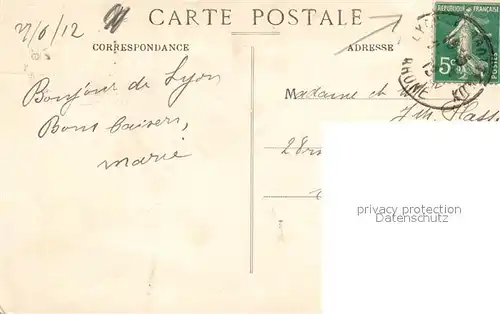 27/6/12
CARTE POSTALE
CORRESPONDANCE
ADRESSE
RÉPUBLIQUE FRANÇAISE
5c
POSTES
LYON
RHONE
Bonjour de Lyon
Bons baisers,
Marie
Madame et M
28
privacy protection
watermark